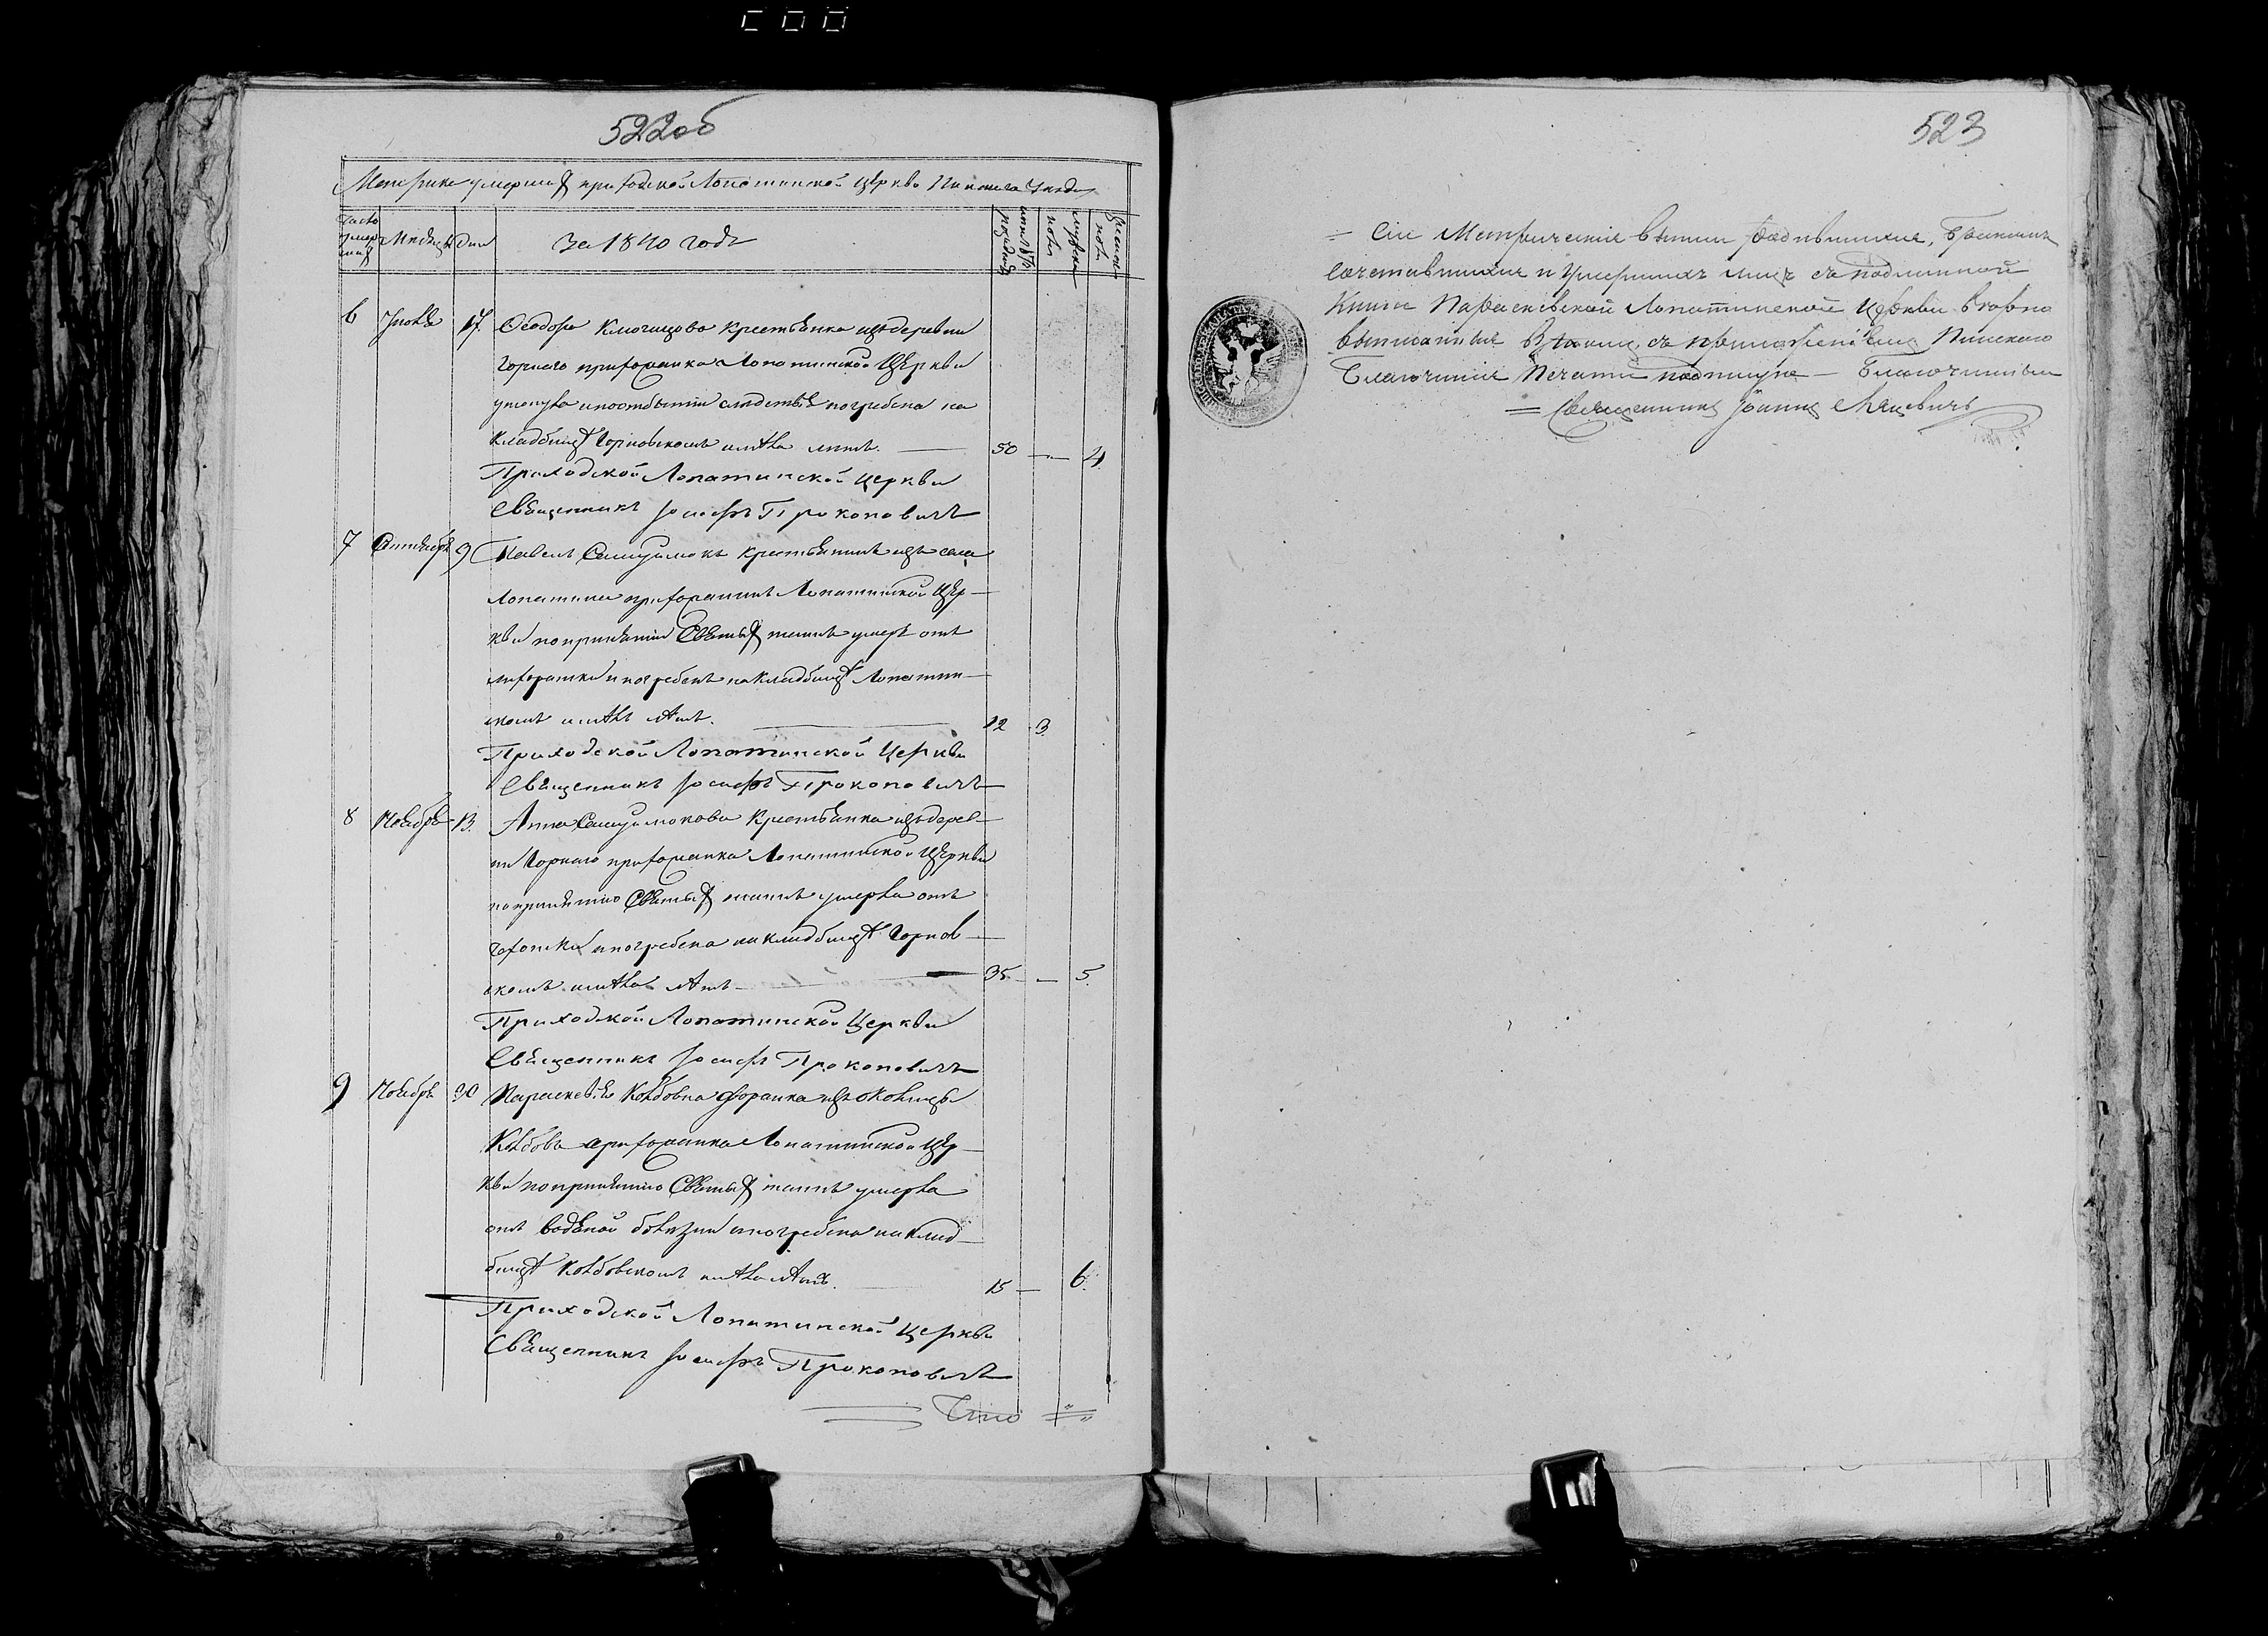 522об
Метрика умершихъ приходской Лопатинской Церкви Пинскаго Уезда
Число умер шихъ
Месяцъ
Дни
За 1840 годъ
6 Июня 17. Феодора Климицова крестьянка изъ деревни
Горнаго прихожанка Лопатинской Церкви
утонула и по отбытии следствія погребена на
кладбищѣ Горновскомъ имѣла летъ. — 50 — 4
Приходской Лопатинской Церкви
Священникъ Іосифъ Прокоповичъ
7 Сентября 9 Павелъ крестьянинъ изъ села
Лопатина прихожанинъ Лопатинской Цер-
кви по принятіи Святыхъ таинъ умеръ отъ
лихорадки и погребенъ на кладбищѣ Лопатин-
скомъ имѣлъ лѣтъ. — 12 3
Приходской Лопатинской Церкви
Священникъ Іосифъ Прокоповичъ
8 Ноября 13. Анна крестьянка изъ дерев-
ни Горнаго прихожанка Лопатинской Церкви
по принятію Святыхъ таинъ умерла отъ
горячки и погребена на кладбищѣ Горнов-
скомъ имѣла лѣтъ — 35 — 5.
Приходской Лопатинской Церкви
Священникъ Іосифъ Прокоповичъ
9 Ноября 30 Параскевія Колбовна изъ околицы
Колбовъ прихожанка Лопатинской Цер-
кви по принятію Святыхъ таинъ умерла
отъ водяной болезни и погребена на клад-
бищѣ Колбовскомъ имѣла лѣтъ. 15 — 6.
Приходской Лопатинской Церкви
Священникъ Іосифъ Прокоповичъ
523
Сіи Метрическія выписи родившихся, Бракомъ
сочетавшихся и Умершихъ лицъ съ подлинной
Книги Параскевской Лопатинской Церкви
выписанныя съ приложеніемъ Пинскаго
Благочинія Печати подпишу — Благочинный
Священникъ Іоаннъ